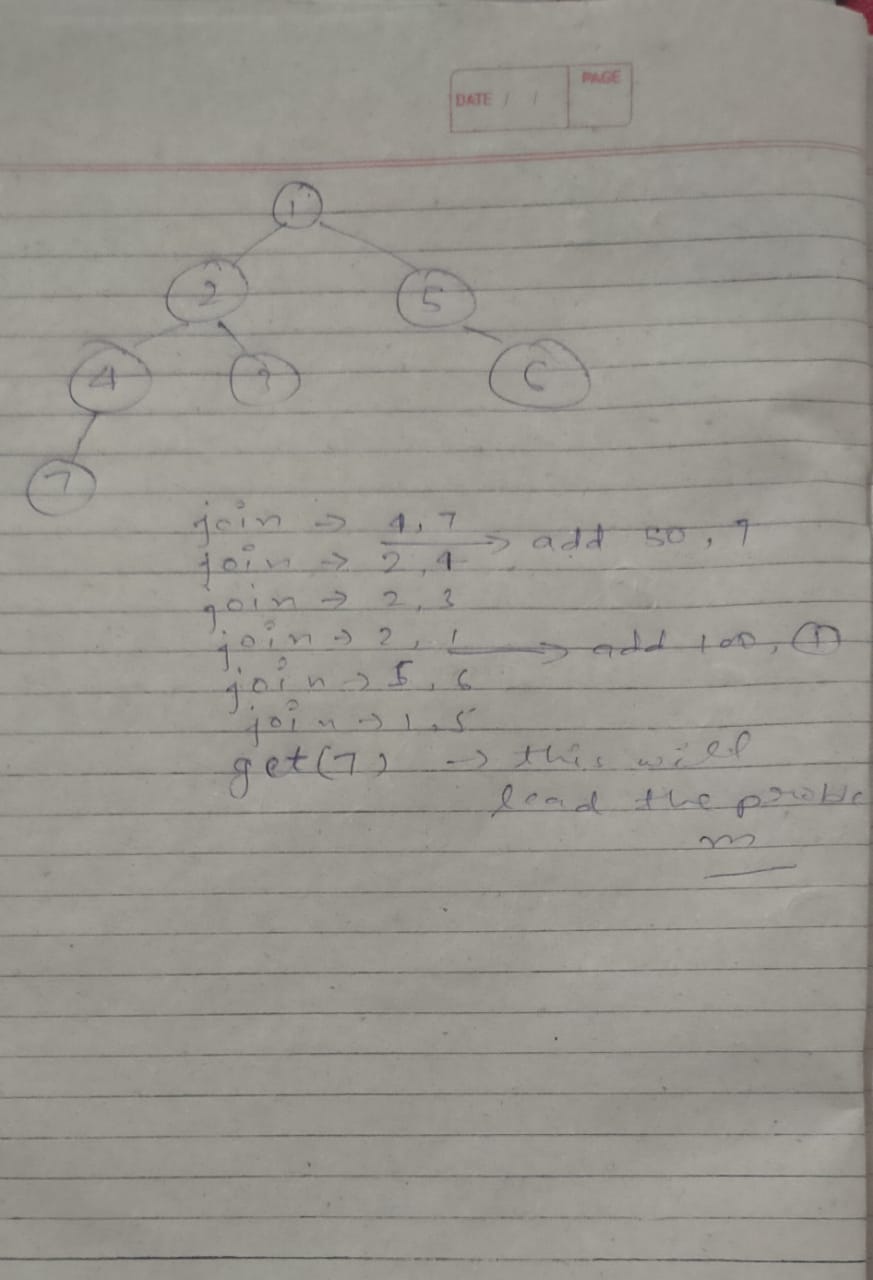 PAGE
DATE / /
1
2 5
4 3 6
7
join → 4, 7
→ add 50, 7
join → 2, 4
join → 2, 3
join → 2, 1 → add 100, 1
join → 5, 6
join → 1, 5
get(7) → this will
lead the proble
m